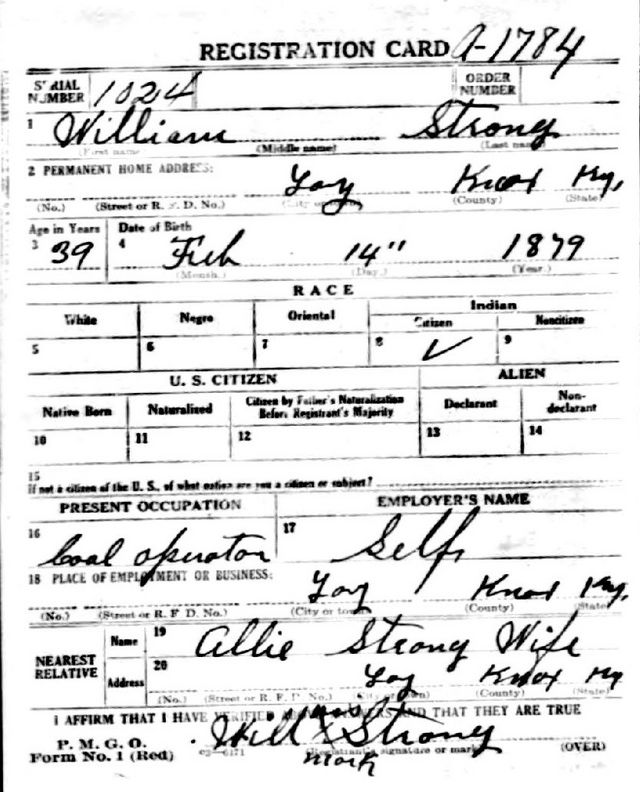 REGISTRATION CARD A-1784
SERIAL NUMBER 1024 ORDER NUMBER
1 William Strong
(First name) (Middle name) (Last name)
2 PERMANENT HOME ADDRESS:
Knox Ky.
(No.) (Street or R. F. D. No.) (City or town) (County) (State)
Age in Years Date of Birth
3 39 4 Feb 14" 1879
(Month.) (Day.) (Year.)
RACE
White Negro Oriental Indian
Citizen Noncitizen
5 6 7 8 ✓ 9
U. S. CITIZEN ALIEN
Native Born Naturalized Citizen by Father's Naturalization Before Registrant's Majority Declarant Non-declarant
10 11 12 13 14
15
If not a citizen of the U. S., of what nation are you a citizen or subject?
PRESENT OCCUPATION EMPLOYER'S NAME
16 Coal operator 17 Self
18 PLACE OF EMPLOYMENT OR BUSINESS:
Knox Ky.
(No.) (Street or R. F. D. No.) (City or town) (County) (State)
NEAREST RELATIVE Name 19 Allie Strong Wife
Address 20 Knox Ky
(No.) (Street or R. F. D. No.) (City or town) (County) (State)
I AFFIRM THAT I HAVE VERIFIED ABOVE ANSWERS AND THAT THEY ARE TRUE
P. M. G. O.
Form No. 1 (Red) Will x Strong
his mark
(Registrant's signature or mark) (OVER)